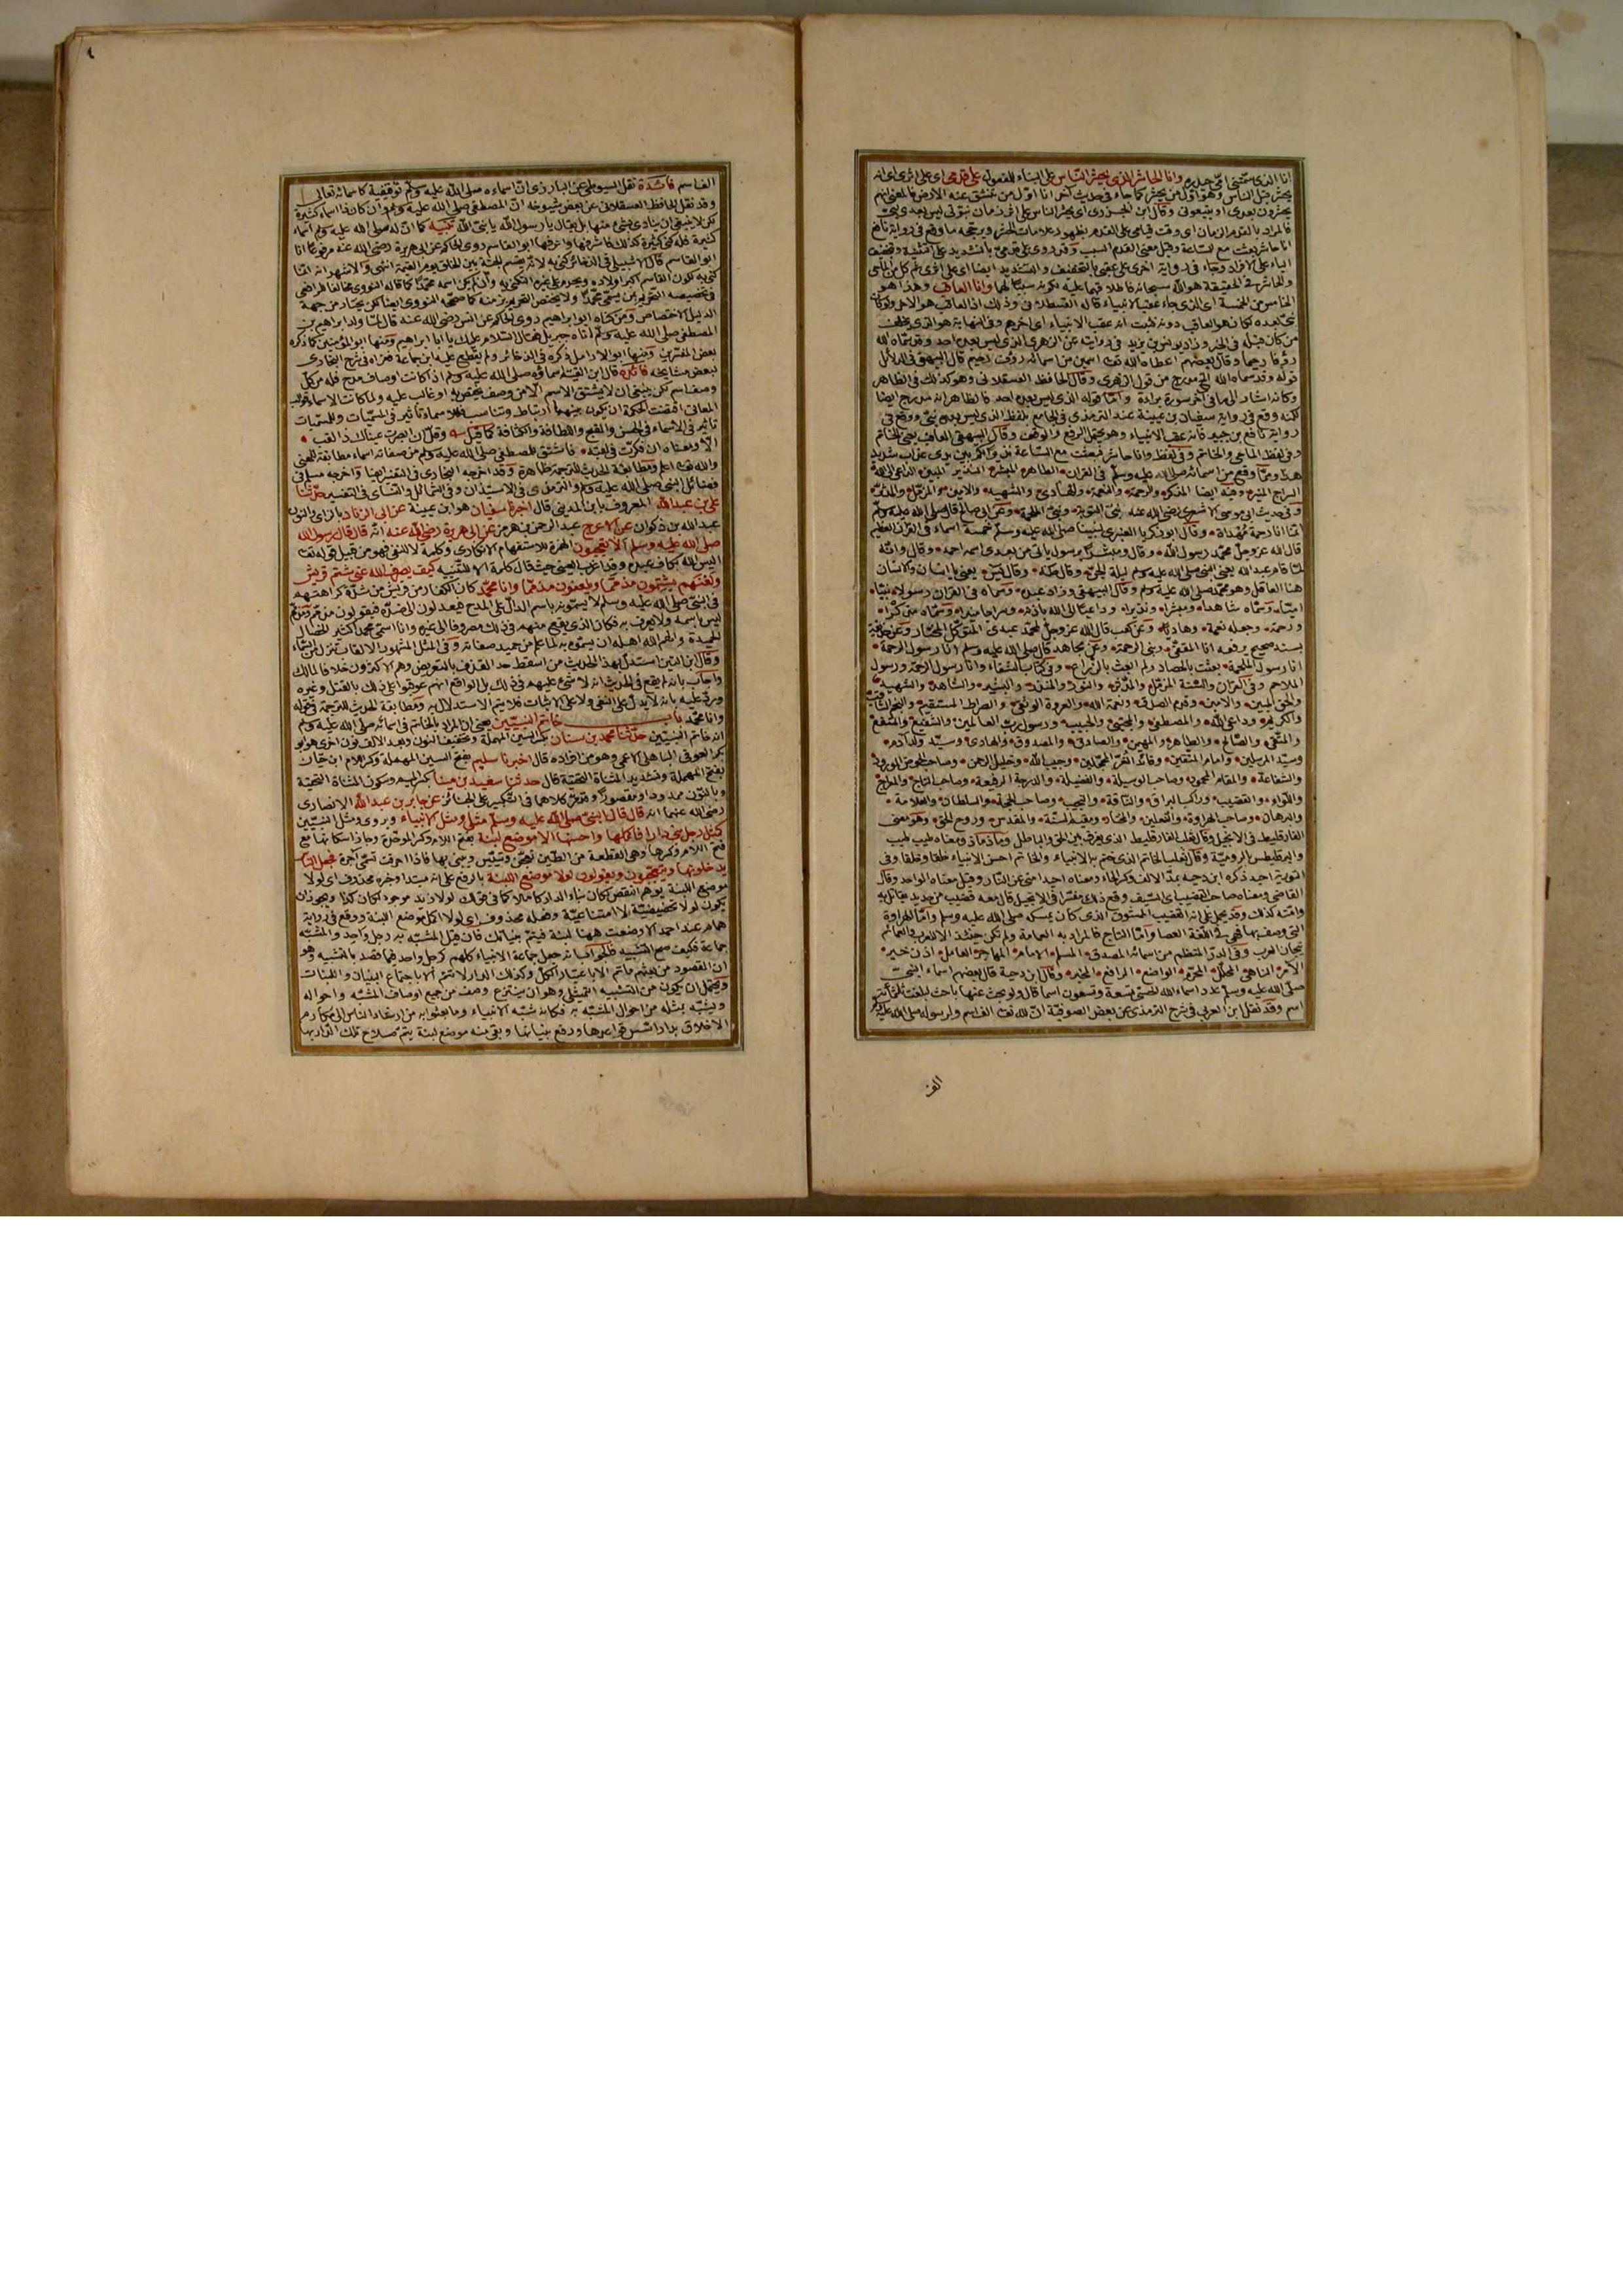 انا الذي وانا الحاشر الذي يحشر الناس على البناء للمفعول على قدمي اي على اثري اي انه
يحشر قبل الناس وهو اول من يحشر كما جاء في حديث آخر انا اول من تنشق عنه الارض فالمعنى انهم
يحشرون بعدي او يتبعوني وقال ابن الجزري اي يحشر الناس على اثر زمان نبوتي ليس بعدي نبي
فالمراد بالقدم الزمان اي وقت قيامي على القدم بظهور علامات الحشر ويرجحه ما وقع في رواية نافع
انا حاشر بعثت مع الساعة وقيل معنى القدم السبب وقد روي على قدمي بالتشديد على التثنية وتخفيف
الياء على الافراد وجاء في رواية اخرى على عقبي بالتخفيف والتشديد ايضا اي على اثري ثم كل من الماحي
والحاشر في الحقيقة هو الله سبحانه فاطلاقهما عليه لكونه سببا لهما وانا العاقب وهذا هو
الخامس من الخمسة اي الذي جاء عقب الانبياء قاله القسطلاني وذلك اذ العاقب هو الآخر ولو كان
نبي بعده لكان هو العاقب دونه فثبت انه عقب الانبياء اي آخرهم وفي النهاية هو الذي يخلف
من كان قبله في الخير وزاد يونس بن يزيد في روايته عن الزهري الذي ليس بعده احد وقد سماه الله
رؤفا رحيما وقال بعضهم اعطاه الله تعالى اسمين من اسمائه رؤف رحيم قال البيهقي في الدلائل
قوله وقد سماه الله الخ مدرج من قول الزهري وقال الحافظ العسقلاني وهو كذلك في الظاهر
وكانه اشار الى ما في آخر سورة براءة واما قوله الذي ليس بعده احد فالظاهر انه مدرج ايضا
لكنه وقع في رواية سفيان بن عيينة عند الترمذي في الجامع بلفظ الذي ليس بعدي نبي ووقع في
رواية نافع بن جبير فانه عقب الانبياء وهو يحتمل الرفع والوقف وقال البيهقي العاقب يعني الخاتم
وفي لفظ الماحي والخاتم وفي لفظ وانا حاشر فبعثت مع الساعة نذيرا لكم بين يدي عذاب شديد
هذا ومما وقع من اسمائه صلى الله عليه وسلم في القرآن الطاهر المبشر النذير المبين الداعي الى الله
السراج المنير وفيه ايضا المذكر والرحمة والنعمة والهادي والشهيد والامين والمزمل والمدثر
وفي حديث ابي موسى الاشعري رضي الله عنه نبي التوبة ونبي الملحمة وعن ابي صالح قال صلى الله عليه وسلم
انما انا رحمة مهداة وقال ابو زكريا العنبري لنبينا صلى الله عليه وسلم خمسة اسماء في القرآن العظيم
قال الله عز وجل محمد رسول الله وقال ومبشرا برسول يأتي من بعدي اسمه احمد وقال وانه
لما قام عبد الله يعني النبي صلى الله عليه وسلم ليلة الجن وقال طه وقال يس يعني يا انسان والانسان
هنا العاقل وهو محمد صلى الله عليه وسلم وقال البيهقي وزاد غيره وسماه في القرآن رسولا نبيا
اميا وسماه شاهدا ومبشرا ونذيرا وداعيا الى الله باذنه وسراجا منيرا وسماه مذكرا
ورحمة وجعله نعمة وهاديا وعن كعب قال الله عز وجل لمحمد عبدي المتوكل المختار وعن حذيفة
بسند صحيح يرفعه انا المقفى ونبي الرحمة وعن مجاهد قال صلى الله عليه وسلم انا رسول الرحمة
انا رسول الملحمة بعثت بالحصاد ولم ابعث بالزراع وفي كتاب الشفاء وانا رسول الرحمة ورسول
الملاحم وفي القرآن والسنة المزمل والمدثر والنور والمنذر والبشير والشاهد والشهيد
والحق المبين والامين وقدم الصدق ونعمة الله والعروة الوثقى والصراط المستقيم والنجم الثاقب
والكريم وداعي الله والمصطفى والمجتبى والحبيب ورسول رب العالمين والشفيع والمشفع
والمتقي والصالح والطاهر والمهيمن والصادق والمصدوق والهادي وسيد ولد آدم
وسيد المرسلين وامام المتقين وقائد الغر المحجلين وحبيب الله وخليل الرحمن وصاحب الحوض المورود
والشفاعة والمقام المحمود وصاحب الوسيلة والفضيلة والدرجة الرفيعة وصاحب التاج والمعراج
واللواء والقضيب وراكب البراق والناقة والنجيب وصاحب الحجة والسلطان والعلامة
والبرهان وصاحب الهراوة والنعلين والمختار ومقيم السنة والمقدس وروح الحق وهو معنى
الفارقليط في الانجيل وقال ثعلب الفارقليط الذي يفرق بين الحق والباطل وماذماذ ومعناه طيب طيب
والبرقليطس بالرومية وقال ثعلب الخاتم الذي ختم به الانبياء والخاتم احسن الانبياء خلقا وخلقا وفي
التورية احيد ذكره ابن دحية بمد الالف وكسر الحاء ومعناه احيد امتي عن النار وقيل معناه الواحد وقال
القاضي ومعناه صاحب القضيب اي السيف وقع ذلك مفسرا في الانجيل قال معه قضيب من حديد يقاتل به
وامته كذلك وقد يحمل على انه القضيب الممشوق الذي كان يمسكه صلى الله عليه وسلم واما الهراوة
التي وصف بها فهي في اللغة العصا واما التاج فالمراد به العمامة ولم تكن حينئذ الا للعرب والعمائم
تيجان العرب وفي الدر المنتظم من اسمائه المصدق المسلم الامام المهاجر العامل اذن خير
الآمر الناهي المحلل المحرم الواضع الرافع المخبر وقال ابن دحية قال بعضهم اسماء النبي
صلى الله عليه وسلم عدد اسماء الله الحسنى تسعة وتسعون اسما قال ولو بحث عنها باحث لبلغت ثلثمائة
اسم وقد نقل ابن العربي في شرح الترمذي عن بعض الصوفية ان لله تعالى الف اسم ولرسوله صلى الله عليه وسلم
الف
الف اسم فائدة نقل السيوطي عن البارزي ان اسماءه صلى الله عليه وسلم توقيفية كاسمائه تعالى
وقد نقل الحافظ العسقلاني عن بعض شيوخه ان المصطفى صلى الله عليه وسلم وان كان ذا اسماء كثيرة
لكن لا ينبغي ان ينادى بشيء منها بل يقال يا رسول الله يا نبي الله تنبيه كما ان له صلى الله عليه وسلم اسماء
كثيرة فله كنى كثيرة كذلك فاشهرها واعرفها ابو القاسم روى الحاكم عن ابي هريرة رضي الله عنه مرفوعا انا
ابو القاسم قال الاشبيلي في الذخائر كني به لانه يقسم الجنة بين الخلق يوم القيمة انتهى والاشهر انه انما
كني به لكون القاسم اكبر اولاده ويحرم على غيره التكني به وان لم يكن اسمه محمدا كما قاله النووي مخالفا للرافعي
في تخصيصه التحريم بمن يسمى محمدا ولا يختص التحريم بزمنه كما صححه النووي ايضا لكن يختار من جهة
الدليل الاختصاص ومن كناه ابو ابراهيم روى الحاكم عن انس رضي الله عنه قال لما ولد ابراهيم بن
المصطفى صلى الله عليه وسلم اتاه جبريل فقال السلام عليك يا ابا ابراهيم ومنها ابو المؤمنين كما ذكره
بعض المفسرين ومنها ابو الارامل ذكره في الذخائر ولم يطلع عليه ابن جماعة فعزاه في شرح البخاري
لبعض مشايخه فائدة قال ابن القيم اسماؤه صلى الله عليه وسلم اذا كانت اوصاف مدح فله من كل
وصف اسم لكن ينبغي ان لا يشتق الاسم الا من وصف يختص به او غالب عليه ولما كانت الاسماء قوالب
المعاني اقتضت الحكمة ان يكون بينهما ارتباط وتناسب فللاسماء تأثير في المسميات وللمسميات
تأثير في الاسماء في الحسن والقبح واللطافة والكثافة كما قيل وقل ان ابصرت عيناك ذا لقب
الا ومعناه ان فكرت في لقبه فاشتق للمصطفى صلى الله عليه وسلم من صفاته اسماء مطابقة للمعنى
والله تعالى اعلم ومطابقة الحديث للترجمة ظاهرة وقد اخرجه البخاري في التفسير ايضا واخرجه مسلم في
فضائل النبي صلى الله عليه وسلم والترمذي في الاستيذان وفي الشمائل والنسائي في التفسير حدثنا
علي بن عبد الله المعروف بابن المديني قال اخبرنا سفيان هو ابن عيينة عن ابي الزناد بالزاي والنون
عبد الله بن ذكوان عن الاعرج عبد الرحمن بن هرمز عن ابي هريرة رضي الله عنه انه قال قال رسول الله
صلى الله عليه وسلم الا تعجبون الهمزة للاستفهام الانكاري وكلمة لا للنفي فهو من قبيل قوله تعالى
اليس الله بكاف عبده وقد اغرب العيني حيث قال كلمة الا للتنبيه كيف يصرف الله عني شتم قريش
ولعنهم يشتمون مذمما ويلعنون مذمما وانا محمد كان الكفار من قريش من شدة كراهتهم
في النبي صلى الله عليه وسلم لا يسمونه باسمه الدال على المدح فيعدلون الى ضده فيقولون مذمم ومذمم
ليس باسمه ولا يعرف به فكان الذي يقع منهم في ذلك مصروفا الى غيره وانا اسمي محمد كثير الخصال
الحميدة والهم الله اهله ان يسموه به لما علم من حميد صفاته وفي المثل المشهور الالقاب تنزل من السماء
وقال ابن التين استدل بهذا الحديث من اسقط حد القذف بالتعريض وهم الاكثرون خلافا لمالك
واجاب بانه لم يقع في الحديث انه لا شيء عليهم في ذلك بل الواقع انهم عوقبوا على ذلك بالقتل وغيره
ورد عليه بانه لا يدل على النفي ولا على الاثبات فلا يتم الاستدلال به ومطابقة الحديث للترجمة في قوله
وانا محمد باب خاتم النبيين يعني ان المراد بالخاتم في اسمائه صلى الله عليه وسلم
انه خاتم النبيين حدثنا محمد بن سنان بكسر السين المهملة وتخفيف النون وبعد الالف نون اخرى هو ابو
بكر العوقي الباهلي الاعمى وهو من افراده قال اخبرنا سليم بفتح السين المهملة وكسر اللام ابن حيان
بفتح المهملة وتشديد المثناة التحتية قال حدثنا سعيد بن مينا بكسر الميم وسكون المثناة التحتية
وبالنون ممدودا ومقصورا ومر كلاهما في التكبير على الجنائز عن جابر بن عبد الله الانصاري
رضي الله عنهما انه قال قال النبي صلى الله عليه وسلم مثلي ومثل الانبياء ويروى ومثل النبيين
كمثل رجل بنى دارا فاكملها واحسنها الا موضع لبنة بفتح اللام وكسر الموحدة وجاز اسكانها مع
فتح اللام وكسرها وهي القطعة من الطين تعجن وتيبس ويبنى بها فاذا احرقت تسمى آجرة فجعل الناس
يدخلونها ويتعجبون ويقولون لولا موضع اللبنة بالرفع على انه مبتدأ وخبره محذوف اي لولا
موضع اللبنة يوهم النقص لكان بناء الدار كاملا كما في قولك لولا زيد موجود لكان كذا ويجوز ان
يكون لولا تحضيضية لا امتناعية وفعله محذوف اي لولا اكمل موضع اللبنة ووقع في رواية
همام عند احمد الا وضعت ههنا لبنة فيتم بنيانك فان قيل المشبه به رجل واحد والمشبه
جماعة فكيف صح التشبيه فالجواب انه جعل جماعة الانبياء كلهم كرجل واحد فيما قصد بالتشبيه وهو
ان المقصود من بعثهم ما تم الا باعتبار الكل وكذلك الدار لا تتم الا باجتماع البنيان واللبنات
ويحتمل ان يكون من التشبيه التمثيلي وهو ان ينتزع وصف من جميع اوصاف المشبه واحواله
ويشبه بمثله من احوال المشبه به فكانه شبه الانبياء وما بعثوا به من ارشاد الناس الى مكارم
الاخلاق بدار اسس قواعدها ورفع بنيانها وبقي منه موضع لبنة يتم صلاح تلك الدار بها